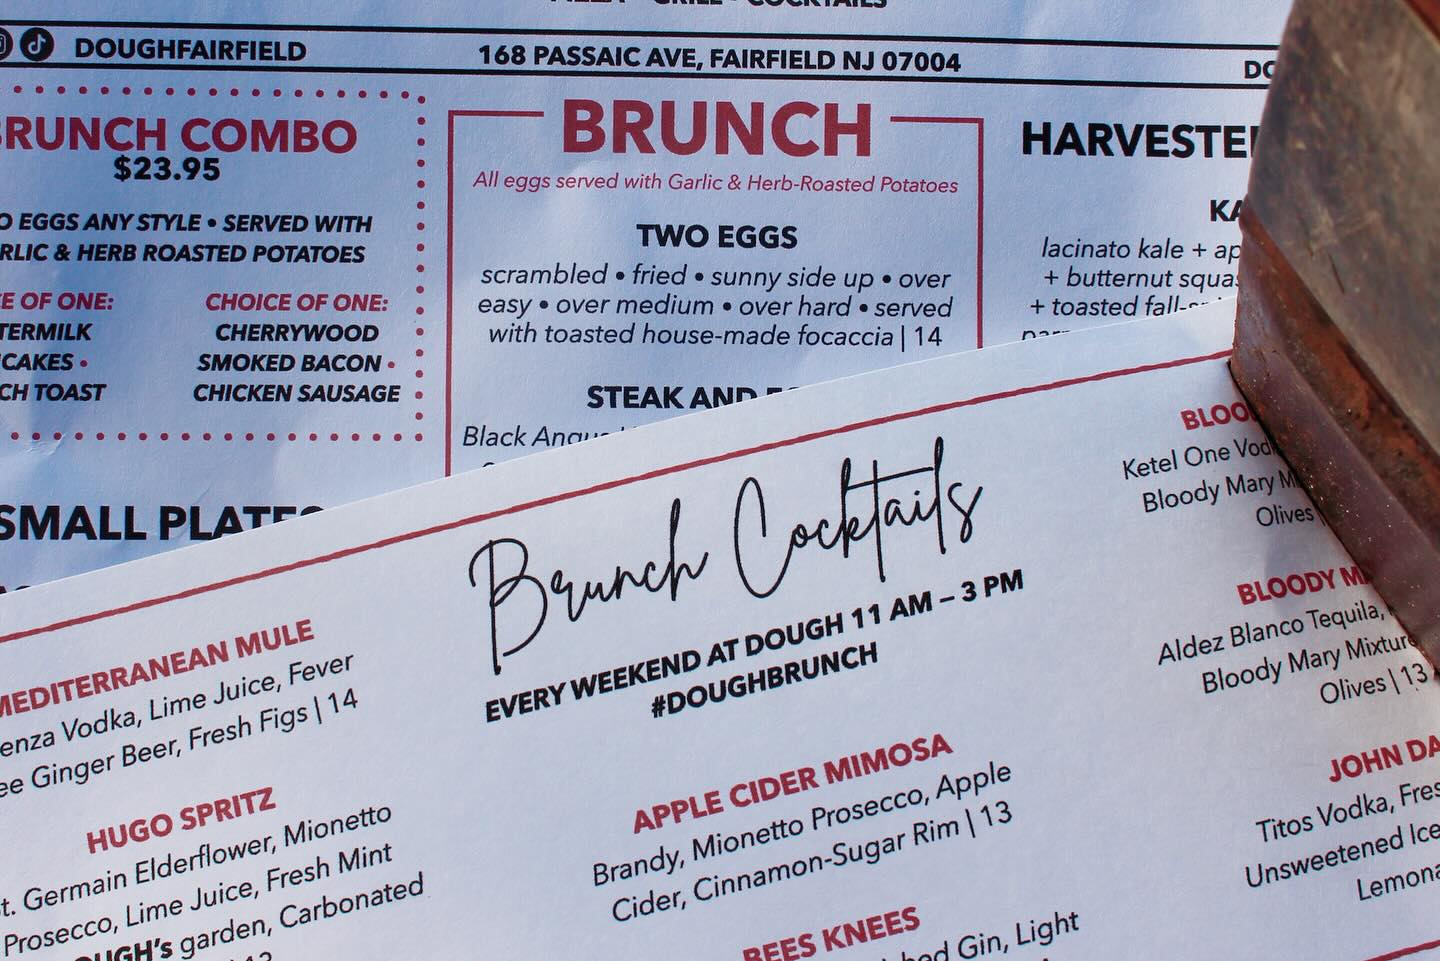 DOUGHFAIRFIELD
168 PASSAIC AVE, FAIRFIELD NJ 07004
BRUNCH COMBO
$23.95
EGGS ANY STYLE • SERVED WITH
& HERB ROASTED POTATOES
OF ONE:
CHOICE OF ONE:
CHERRYWOOD
SMOKED BACON •
TOAST
CHICKEN SAUSAGE
SMALL PLATES
BRUNCH
All eggs served with Garlic & Herb-Roasted Potatoes
TWO EGGS
scrambled • fried • sunny side up • over
easy • over medium • over hard • served
with toasted house-made focaccia | 14
STEAK AND
Black
lacinato kale +
+ butternut
+ toasted
Brunch Cocktails
EVERY WEEKEND AT DOUGH 11 AM – 3 PM
#DOUGHBRUNCH
MEDITERRANEAN MULE
Vodka, Lime Juice, Fever
Ginger Beer, Fresh Figs | 14
HUGO SPRITZ
St. Germain Elderflower, Mionetto
Prosecco, Lime Juice, Fresh Mint
DOUGH's garden, Carbonated
APPLE CIDER MIMOSA
Brandy, Mionetto Prosecco, Apple
Cider, Cinnamon-Sugar Rim | 13
BEES KNEES
Gin, Light
Ketel One
Bloody Mary
Olives
BLOODY
Aldez Blanco Tequila,
Bloody Mary Mixture
Olives | 13
JOHN
Titos Vodka,
Unsweetened